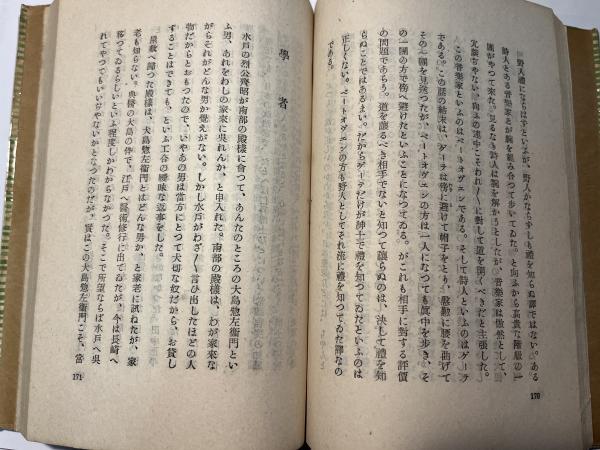 野人禮にならはずといふが、野人かならずしも禮を知らぬ譯ではない。ある
詩人とある音樂家とが腕を組み合つて歩いてゐた。と向ふから高貴な階級の一
團がやつて來た。見るなり詩人は腕を解からうとしたが、音樂家は傲然として、
冗談ぢやない。向ふの連中こそわれ〳〵に對して道を開くべきだと主張した。
この音樂家といふのはベートオヴェンである。そして詩人といふのはゲーテ
である。この話の結末は、ゲーテは傍に避けて帽子をとり、慇懃に腰を曲げて
その一團を見送つたが、ベートオヴェンの方は一人になつても眞中を歩き、そ
の一團の方で傍へ避けたといふことになつてゐる。がこれも相手に對する評價
の問題であらう。道を讓るべき相手でないと知つて讓らぬのは、決して禮を知
らぬことではあるまい。だからゲーテだけが紳士で禮を知つてゐたといふのは
正しくない。ベートオヴェンの方も野人としてそれ流に禮を知つてゐた譯なの
である。
170
學者
水戸の烈公齊昭が南部の殿樣に會つて、あんたのところの大島惣左衞門とい
ふ男、あれをわしの家來に呉れんか、と申入れた。南部の殿樣は、わが家來な
がらそれがどんな男か覺えがない。しかし水戸がわざ〳〵言ひ出したほどの人
物だからとおもつたので、いやあの男は當方にとつて大切な奴だから、お貸し
することはできても、といふ工合の曖昧な返事をした。
屋敷へ歸つた殿樣は、大島惣左衞門とはどんな男か、と家老に訊ねたが、家
老も知らない。典醫の大島の伜で、江戸へ醫術修行に出てゐたが、今は長崎へ
移つてゐるらしいといふ程度しかわからなかつた。そこで所望ならば水戸へ呉
れてやつてもいいぢやないかとなつたのだが、實はこの大島惣左衞門こそ、當
171